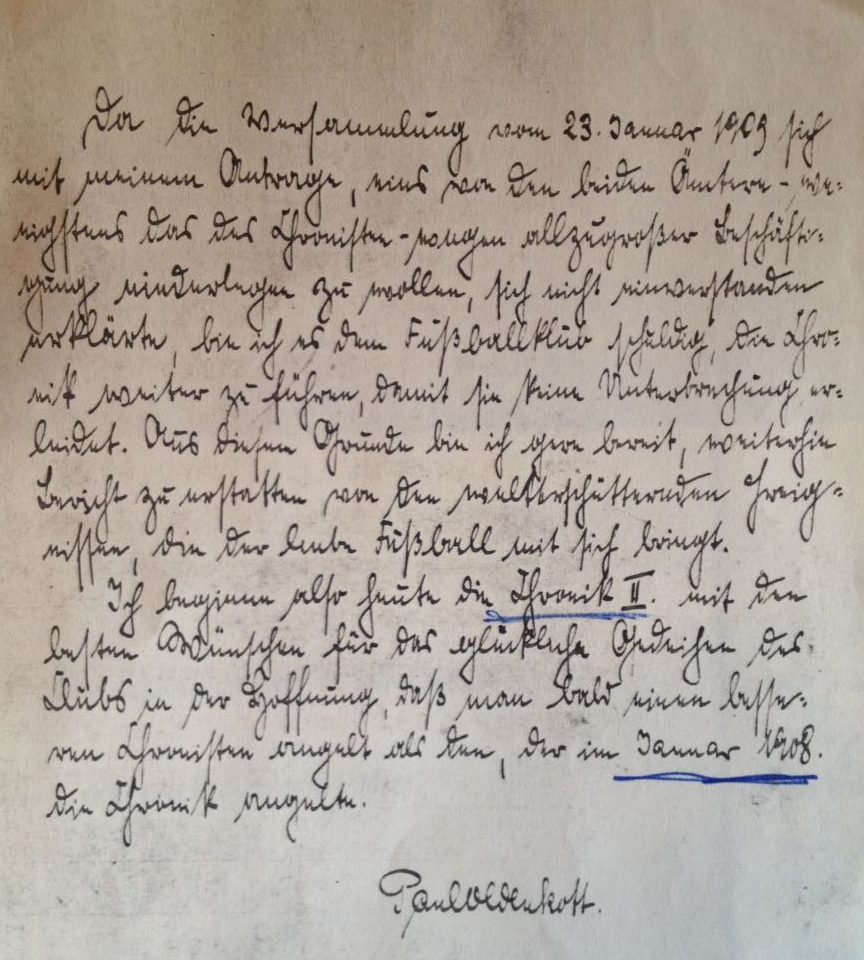 Da die Versammlung vom 23. Januar 1909 sich
mit meinem Antrage, eins von den beiden Ämtern - we-
nigstens das des Chronisten - wegen allzugroßer Beschäfti-
gung niederlegen zu wollen, sich nicht einverstanden
erklärte, bin ich es dem Fußballklub schuldig, die Chro-
nik weiter zu führen, damit sie keine Unterbrechung er-
leidet. Aus diesem Grunde bin ich gern bereit, weiterhin
Bericht zu erstatten von den welterschütternden Ereig-
nissen, die der liebe Fußball mit sich bringt.
Ich beginne also heute die Chronik II. mit den
besten Wünschen für das glückliche Gedeihen des
Clubs in der Hoffnung, daß man bald einen besse-
ren Chronisten angelt als den, der im Januar 1908.
die Chronik angelte.
Paul Oldenkott.